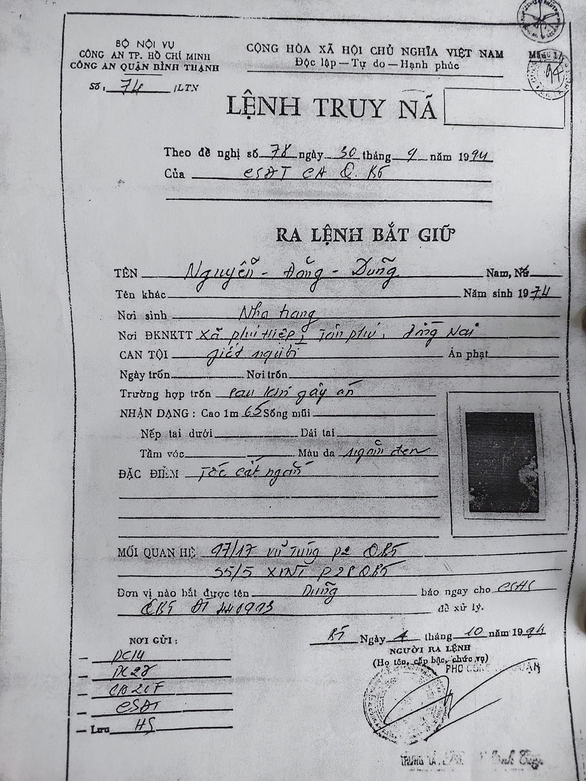 BỘ NỘI VỤ
CÔNG AN TP. HỒ CHÍ MINH
CÔNG AN QUẬN BÌNH THẠNH
Số: 74 /LTN
CỘNG HÒA XÃ HỘI CHỦ NGHĨA VIỆT NAM
Độc lập — Tự do — Hạnh phúc
LỆNH TRUY NÃ
Theo đề nghị số 78 ngày 30 tháng 9 năm 1994
Của CSĐT CA Q. BT
RA LỆNH BẮT GIỮ
TÊN Nguyễn - Đăng - Dũng Nam, Nữ
Tên khác Năm sinh 1974
Nơi sinh Nha trang
Nơi ĐKNKTT Xã phú Hiệp, Tân phú, đồng Nai
CAN TỘI giết người Án phạt
Ngày trốn Nơi trốn
Trường hợp trốn sau khi gây án
NHẬN DẠNG : Cao 1m 65 Sống mũi
Nếp tai dưới Dái tai
Tầm vóc Màu da ngăm đen
ĐẶC ĐIỂM Tóc cắt ngắn
MỐI QUAN HỆ 97/17 vũ Tùng P2 QBT
55/5 XVNT P28 QBT
Đơn vị nào bắt được tên Dũng báo ngay cho CSHS
QBT ĐT 440993 để xử lý.
NƠI GỬI :
— PC14
— PC28
— CSĐT
— Lưu HS
BT Ngày 4 tháng 10 năm 1994
NGƯỜI RA LỆNH
(Họ tên, cấp bậc, chức vụ)